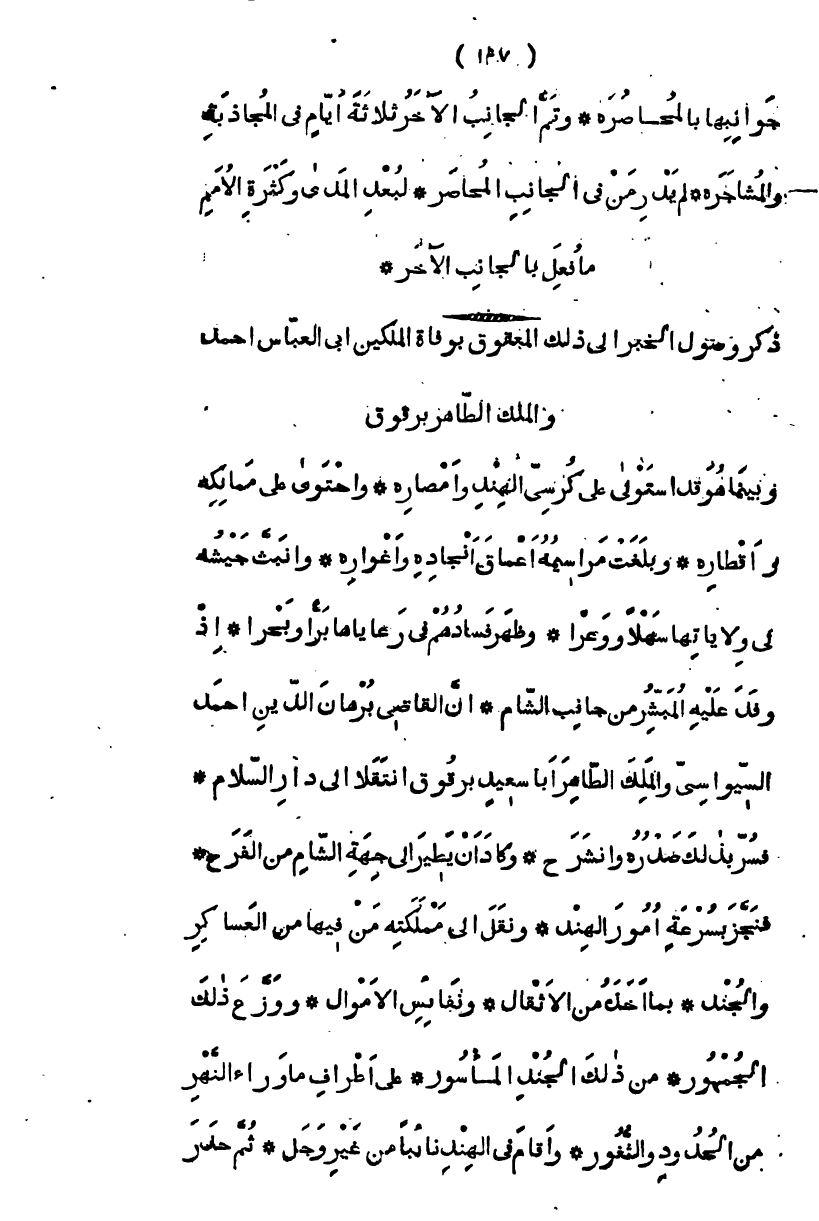 ( ١٣٧ )
جَوانِبِها بالمُحاصَرَه * وتَمَّ الجانِبُ الآخَرُ ثَلاثَةَ أيّامٍ فى المُجاذَبَةِ
والمُشاجَرَه * لم يَدْرِ مَنْ فى الجانِبِ المُحاصَر * لبُعْدِ المَدىٰ وكَثْرَةِ الاُمَمِ
ما فُعِلَ بالجانِبِ الآخَر *
ذكر وصول الخبر الى ذلك المعقوق بوفاة الملكين ابى العبّاس احمد
والملك الظّاهر برقوق
وبينَما هُوَ قد استَوْلىٰ على كُرْسِىّ الهِنْدِ وأمْصارِه * واحْتَوىٰ على مَمالِكِه
وأقْطارِه * وبلَغَتْ مَراسِيمُهُ أعْماقَ أنْجادِهِ وأغْوارِه * وانبَثَّ جَيْشُه
فى وِلاياتِها سَهْلاً ووَعْرا * وظَهَر فَسادُهُمْ فى رَعاياها بَرّاً وبَحْرا * إذْ
وفَدَ عَلَيْهِ المُبَشِّرُ من جانِب الشّام * انَّ القاضِى بُرْهانَ الدّينِ احمَد
السِّيواسِىّ والمَلِكَ الظّاهِرَ أبا سعيدٍ برقُوق انتَقَلا الى دارِ السّلام *
فسُرَّ بذٰلكَ صَدْرُهُ وانشَرَح * وكادَ أنْ يَطِيرَ الى جِهَةِ الشّامِ من الفَرَح *
فنَجَّزَ بسُرْعَةٍ اُمُورَ الهِنْد * ونقَلَ الى مَمْلَكَتِه مَنْ فِيها من العَساكِرِ
والجُنْد * بما أخَذَهُ من الاَثْقال * ونَفايِسِ الاَمْوال * ووَزَّعَ ذٰلكَ
الجُمْهُور * من ذٰلكَ الجُنْدِ المَأسُور * على أطْرافِ ماوَراء النَّهْرِ
من الحُدُودِ والثُّغُور * وأقامَ فى الهِنْدِ نائباً من غَيْرِ وَجَل * ثُمَّ حدَرَ